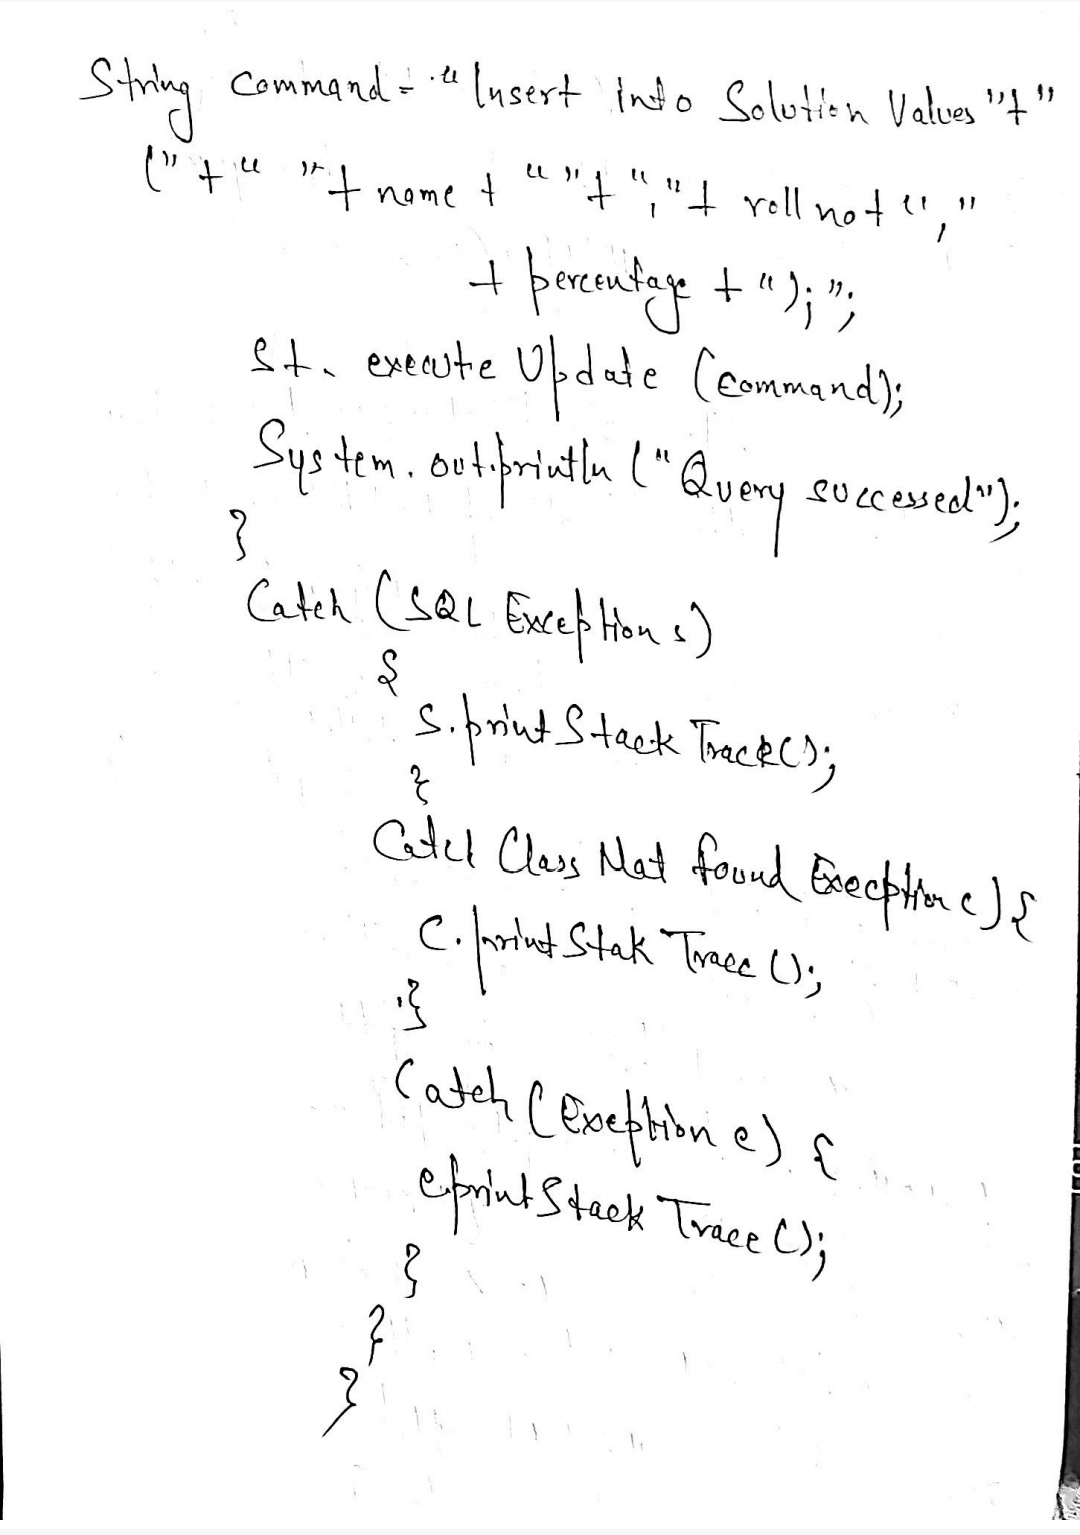 String command = " Insert into Solution Values "+"
(" + " "+ name + " "+ ","+ roll no + ","
+ percentage + ");";
St. execute Update (command);
System. out.println ("Query successed");
}
Catch (SQL Exception s)
{
S.print Stack Track();
}
Catcl Class Not found Execption c) {
C. print Stak Trace ();
}
Catch (Exception e) {
e.print Stack Trace ();
}
}
}